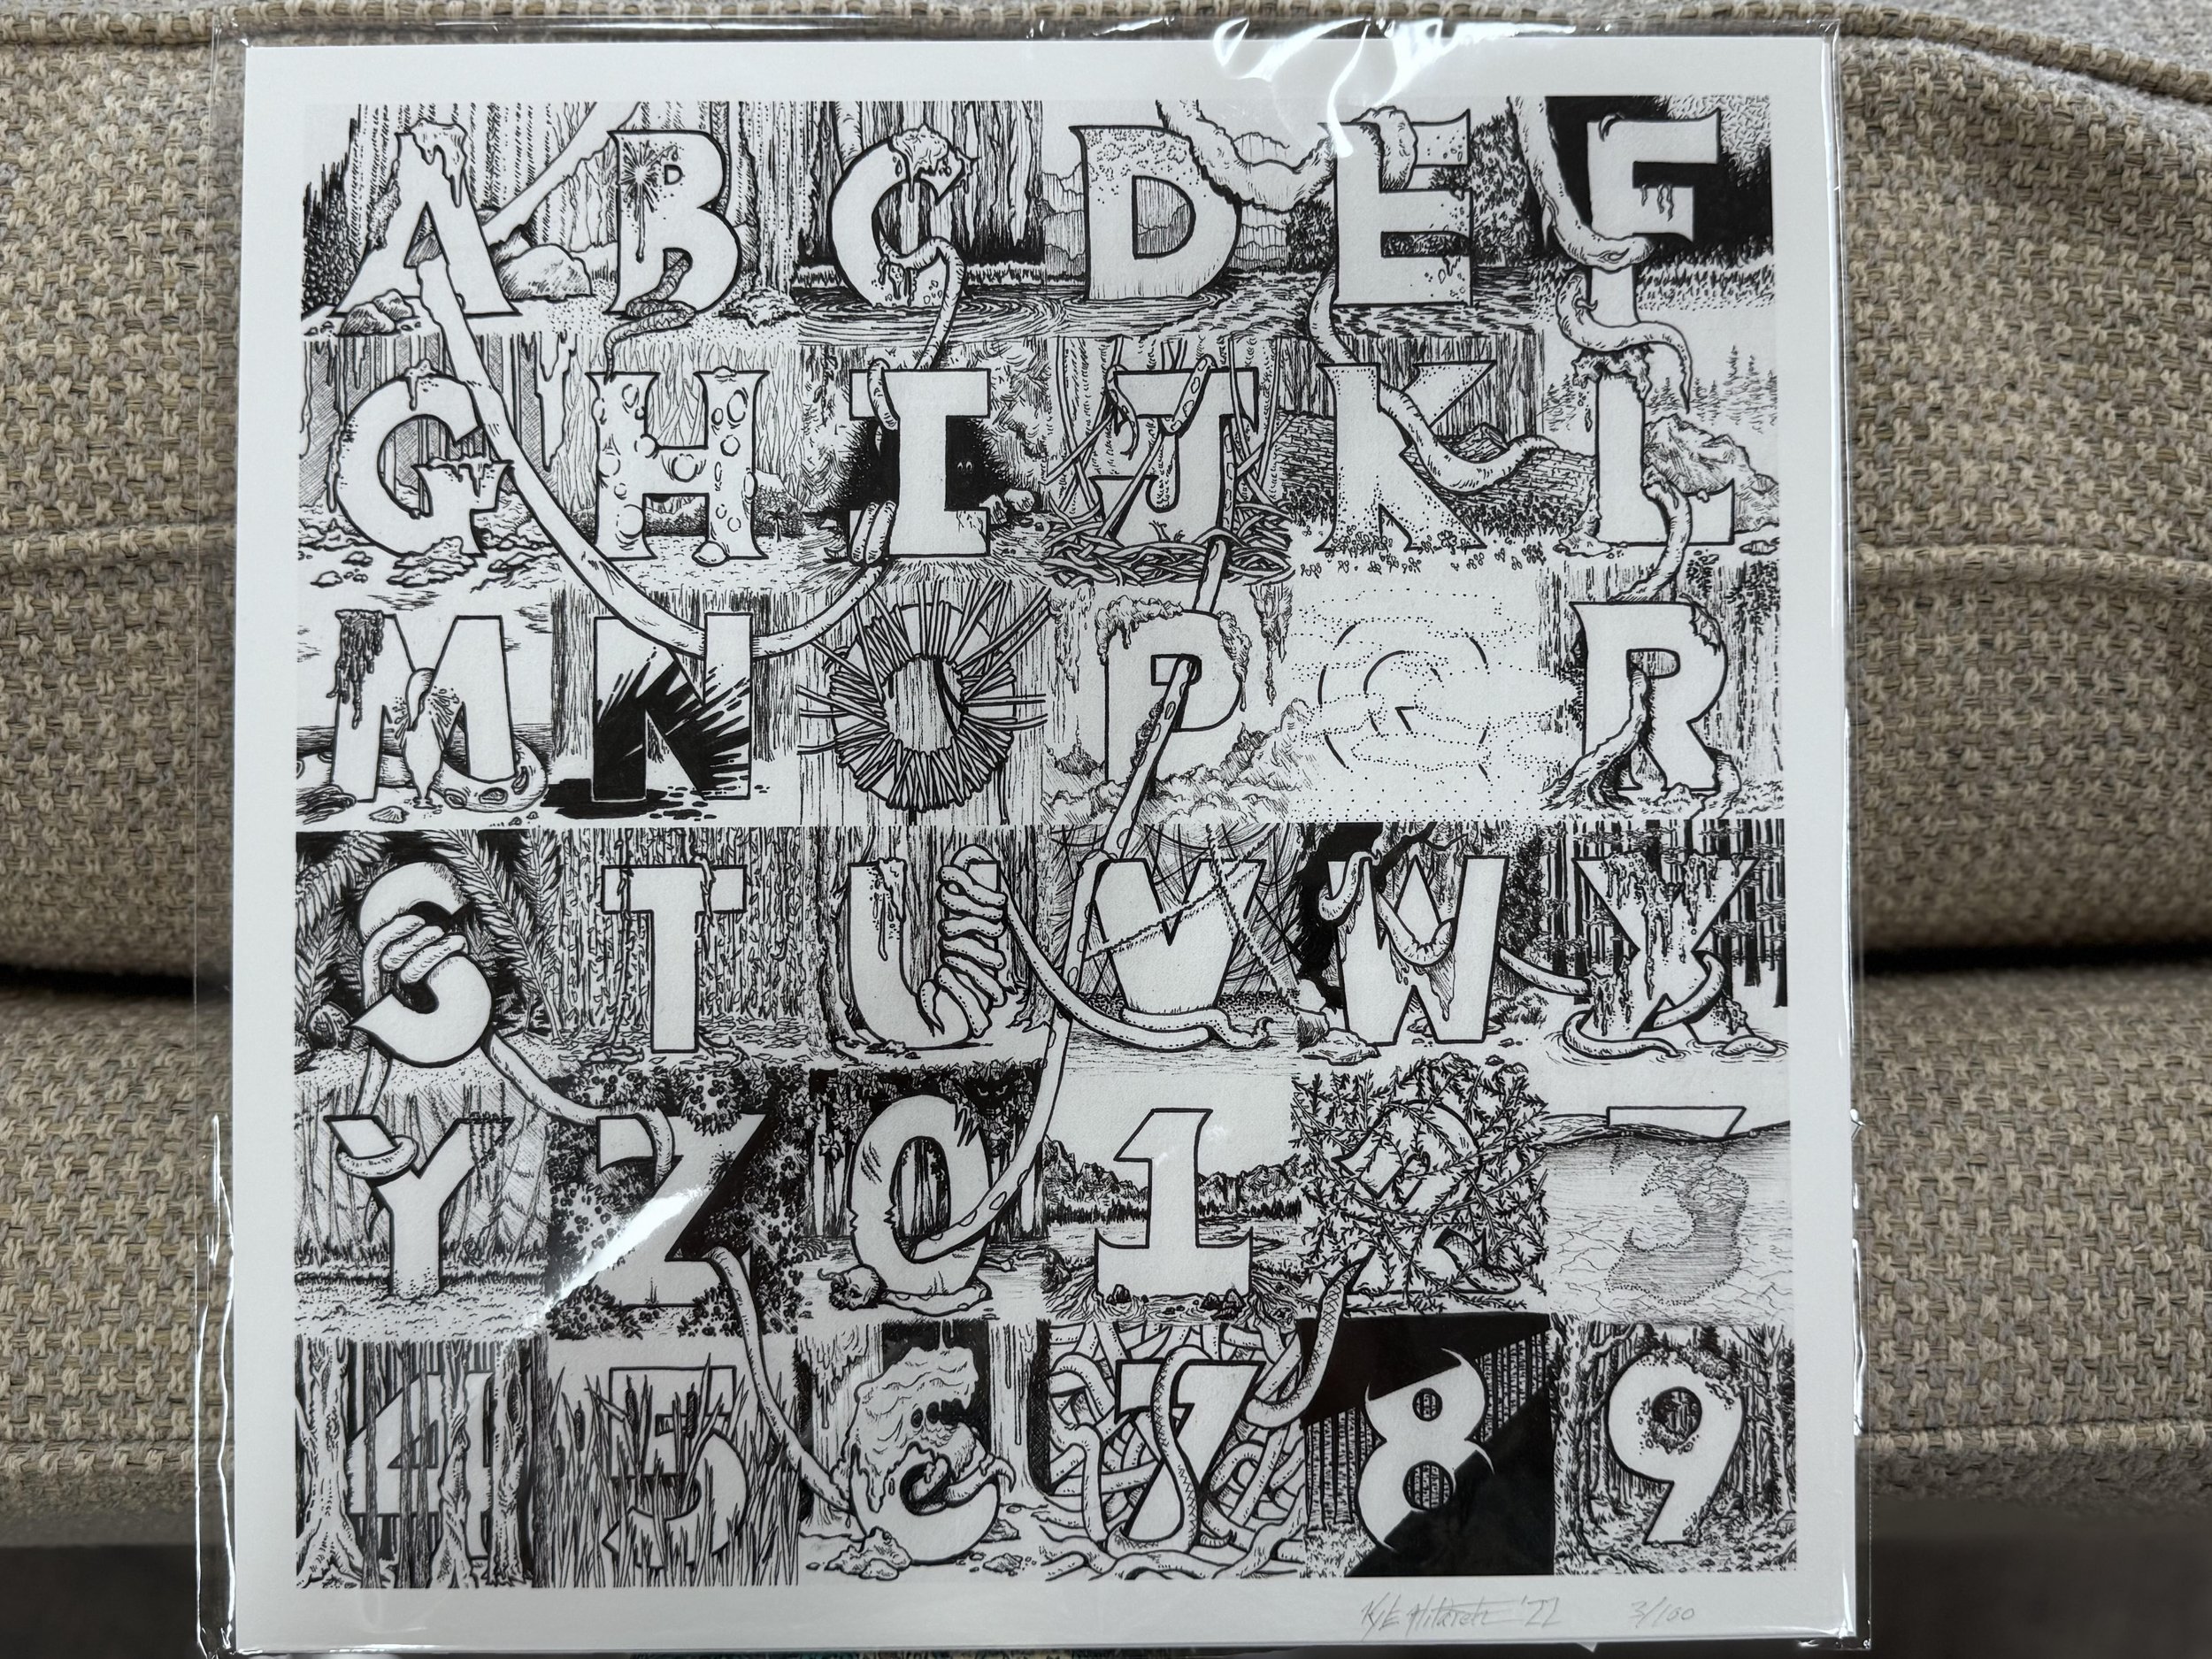 A B C D E F
G H I J K L
M N O P Q R
S T U V W X
Y Z 0 1 2 3
4 5 6 7 8 9
Kyle '22 3/100